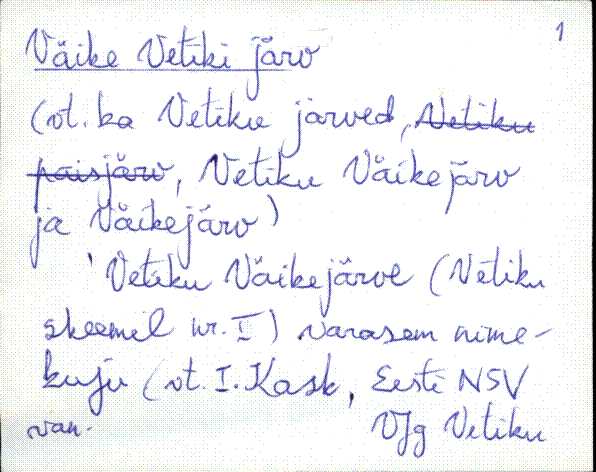 1
Väike Vetiki järv
(vt. ka Vetiku järved, Vetiku
paisjärv, Vetiku Väikejärv
ja Väikejärv)
Vetiku Väikejärve (Vetiku
skeemil nr. I) varasem nime-
kuju (vt. I. Kask, Eesti NSV
van. VJg Vetiku